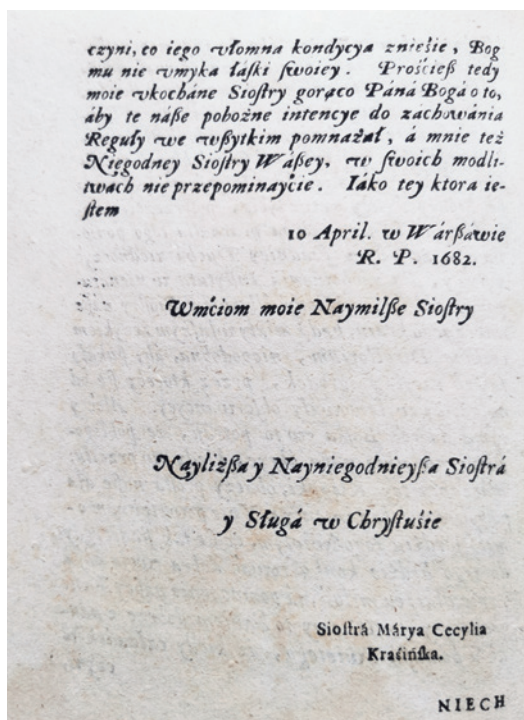 czyni, co iego vłomna kondycyaznieśie, Bog
mu nie vmyka łaſki ſwoiey. Prośćieß tedy
moie vkocháne Sioſtry gorąco Páná Bogá o to,
áby te náße pobożne intencye do záchowánia
Reguły we wßytkim pomnażał, á mnie też
Niegodney Sioſtry Wáßey, w ſwoich modli-
twách nie przepominayćie. Iáko tey ktora ie-
ſtem
10 April. w Wárßáwie
R. P. 1682.
Wmćiom moie Naymilße Sioſtry
Nayliżßa y Nayniegodnieyßa Sioſtrá
y Sługá w Chryſtuśie
Sioſtrá Márya Cecylia
Kraśińſka.
NIECH